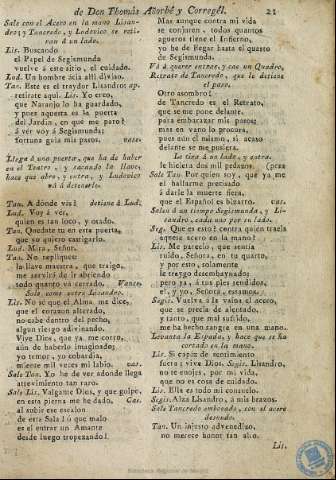 de Don Thomás Añorbe y Corregél. 21
Sale con el Acero en la mano Lisan-
dro; y Tancredo, y Ludovico se reti-
ran à un lado.
Lis. Buscando
el Papel de Segismunda,
vuelvo à este sitio, el cuidado.
Lud. Un hombre ácia allí diviso.
Tan. Este es el traydor Lisandro:
retirate aqui. Lis. Yo creo,
que Naranjo lo ha guardado,
y pues aquesta es la puerta
del Jardin, en que me paro?
à vér voy á Segismunda:
fortuna guia mis pasos. vase.
Llega à una puerta, que ha de haber
en el Teatro, y sacando la llave,
hace que abre, y entra, y Ludovico
và à detenerlo.
Tan. A dónde vás? detiene à Lud.
Lud. Voy à ver,
quien es tan loco, y osado.
Tan. Quedate tu en esta puerta,
que yo quiero castigarlo.
Lud. Mira, Señor.
Tan. No repliques:
la llave maestra, que traigo,
me servirá de ir abriendo
todo quanto vá cerrado. Vanse.
Sale, como antes Lisandro.
Lis. No sé que el Alma, me dice,
que el corazon alterado,
no cabe dentro del pecho;
algun riesgo adivinando.
Vive Dios, que ya me corro,
aún de haberlo imaginado;
yo temor, yo cobardia,
miente mil veces mi labio. vas.
Sale Tan. Yo he de ver adonde llega
atrevimiento tan raro.
Sale Lis. Valgame Dios, y que golpe,
en esta pierna me he dado, Cae.
al subir ese escalon
de esta Sala! ó que malo
es el entrar un Amante
desde luego tropezando!
Mas aunque contra mi vida
se conjuren, todos quantos
agueros tiene el Infierno,
yo he de llegar hasta el quarto
de Segismunda.
Vá à querer entrar, y cae un Quadro,
Retrato de Tancredo, que le detiene
el paso.
Otro asombro!
de Tancredo es el Retrato,
que se me pone delante,
para embarazar mis pasos;
mas en vano lo procura,
pues aún él mismo, si acaso
delante se me pusiera,
Lo tira à un lado, y entra.
le hiciera dos mil pedazos. éntra
Sale Tan. Por quien soy, que ya me
el hallarme precisado
à darle la muerte fiera,
que el Español es bizarro. vas.
Salen à un tiempo Segismunda, y Li-
sandro, cada uno por su lado.
Seg. Que es esto? contra quien traeis
aqueste acero en la mano?
Lis. Me pareció, que sentia
ruido, Señora, en tu quarto,
y por esto, solamente
le traygo desembaynado;
pero ya, à tus pies rendidos,
él, y yo, Señora, estamos.
Segis. Vuelva à la vaina el acero,
que se precia de alentado,
y tanto, que mal sufrido,
me ha hecho sangre en una mano.
Levanta la Espada, y hace que se ha
cortado en la mano.
Lis. Si capaz de sentimiento
fuera; vive Dios. Segis. Lisandro,
no te enojes, por mi vida,
que no es cosa de cuidado.
Lis. Ella es todo mi consuelo.
Segis. Alza Lisandro, à mis brazos.
Sale Tancredo embozado, con el acero
desnudo.
Tan. Un injusto advenedizo,
no merece honor tan alto.
Lis.